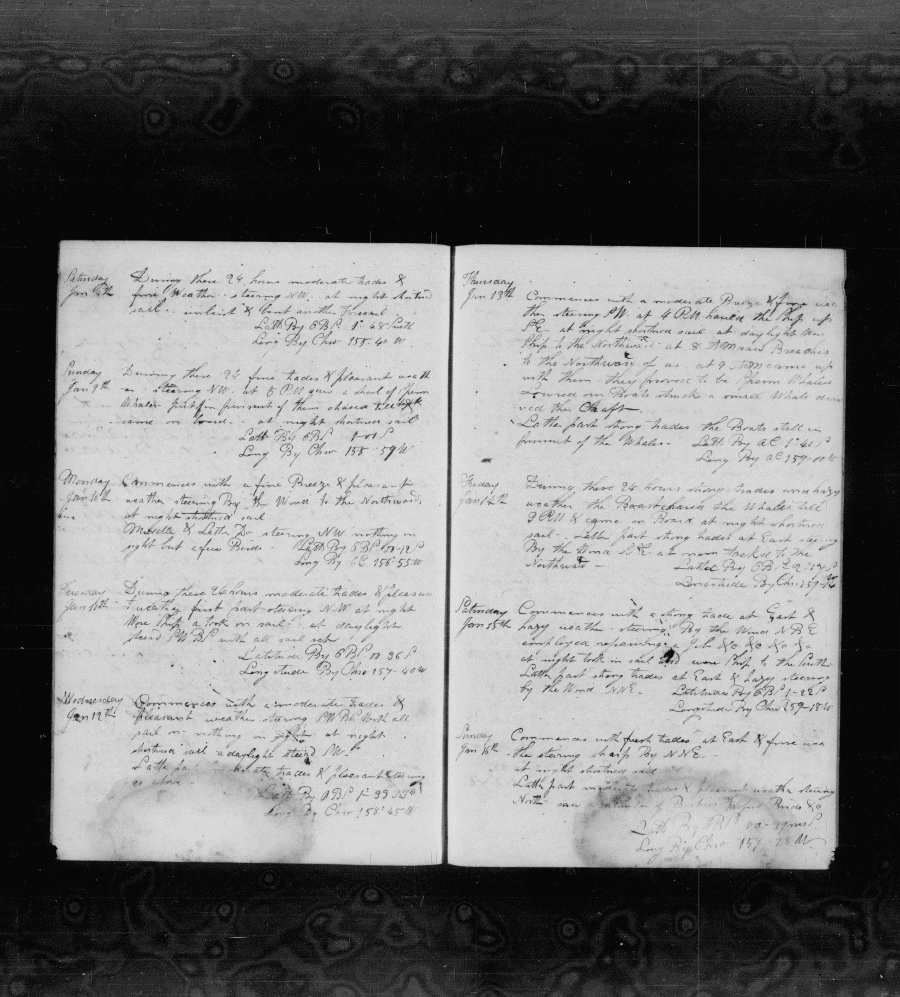 Saturday During these 24 hours moderate trades &
Jan 8th fine Weather steering NW. at night shortened
sail. unbent & bent another Foresail
Latt By OBS 1° 48 South
Long By Chro 155-40 W
Sunday During these 24 fine trades & pleasant weath
Jan 9th er steering NW. at 5 PM saw a shoal of Sperm
Whales put in pursuit of them chased
came on board. at night shortned sail
Latt By OBS 1-01 S
Long By Chro 155-59 W
Monday Commences with a fine Breeze & pleasant
Jan 10th weather steering By the Wind to the Northward
at night shortned sail
Middle & Latter Pt steering NW nothing in
sight but a few Birds. Latt By OBS 00-12 S
Long By 156-55 W
Tuesday During these 24 hours moderate trades & pleasan
Jan 11th t weather first part steering NW at night
Wore Ship & took in sail at daylight
steerd SW BS with all sail set
Latitude By OBS 00 36 S
Longitude By Chro 157-40 W
Wednesday Commences with moderate trades &
Jan 12th pleasant weather steering SW BS With all
sail on nothing in sight at night
shortned sail a daylight steerd SW
Latter trades & pleasant steering
as above
Latt By OBS 1° 33 S
Long By Chro 158-45 W
Thursday
Jan 13th Commences with a moderate Breeze & fine wea
ther steering SW at 4 PM hauld the Ship up
SE. at night shortned sail at daylight
Ship to the Northward at 8 AM saw Breaches
to the Northward of us. at 9 AM came up
with them they proved to be Sperm Whales
Lowerd our Boats struck a small Whale
the Craft
Latter part strong trades the Boats still in
pursuit of the Whales. Latt By AC 1° 40 S
Long By AC 159-00 W
Friday During these 24 hours strong trades and hazy
Jan 14th weather the Boats chased the Whales till
PM & came on Board at night shortned
sail Latter part strong trades at East steering
By the Wind at noon tacked to the
Northward Latter By OB S 2-17 S
Longitude By Chro 159
Saturday Commences with a strong trade at East &
Jan 15th hazy weather steering By the Wind N B E
employed repairing a Jib &c &c &c &c
at night took in sail and wore Ship to the South
Latter part strong trades at East & hazy steering
by the Wind NNE. Latitude By OBS 1-22 S
Longitude By Chro 159-18 W
Sunday Commences with fresh trades at East & fine wea
Jan 16th ther steering sharp By NNE
at night shortned sail
Latter part moderate trades & pleasant weather steering
North saw a number of Birds &c
Latt By OBS 00-39 S
Long By Chro 159-28 W